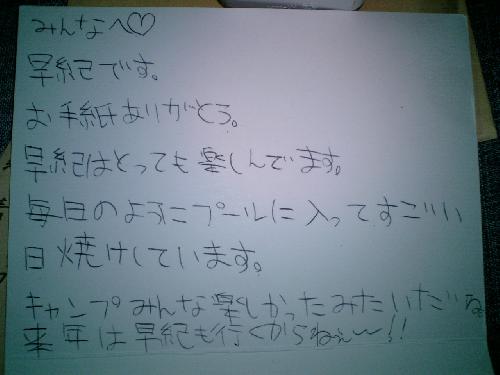 みんなへ♡
早紀です。
お手紙ありがとう。
早紀はとっても楽しんでます。
毎日のようにプールに入ってすごいい
日焼けしています。
キャンプみんな楽しかったみたいだね。
来年は早紀も行くからねぇ〜!!